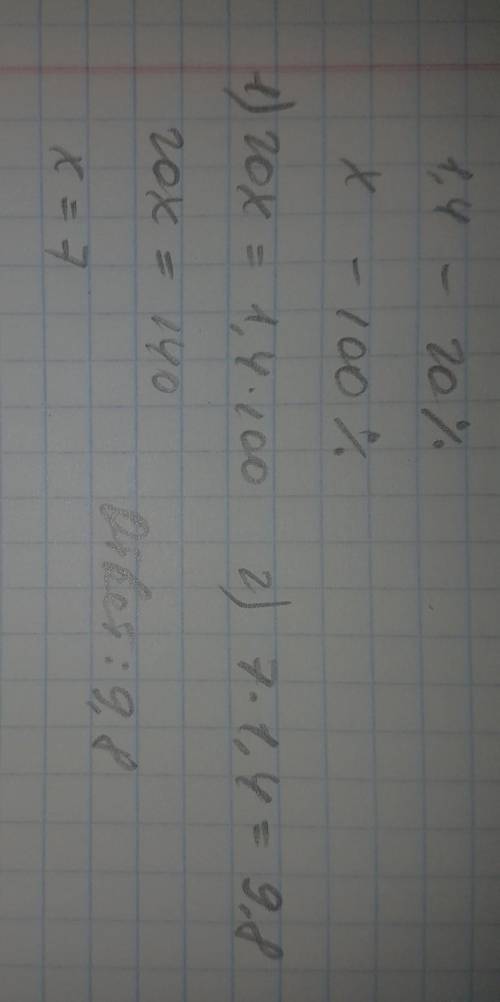 1,4 - 20%
x - 100%
1) 20x = 1,4·100
20x = 140
x = 7
2) 7·1,4 = 9,8
Ответ: 9,8